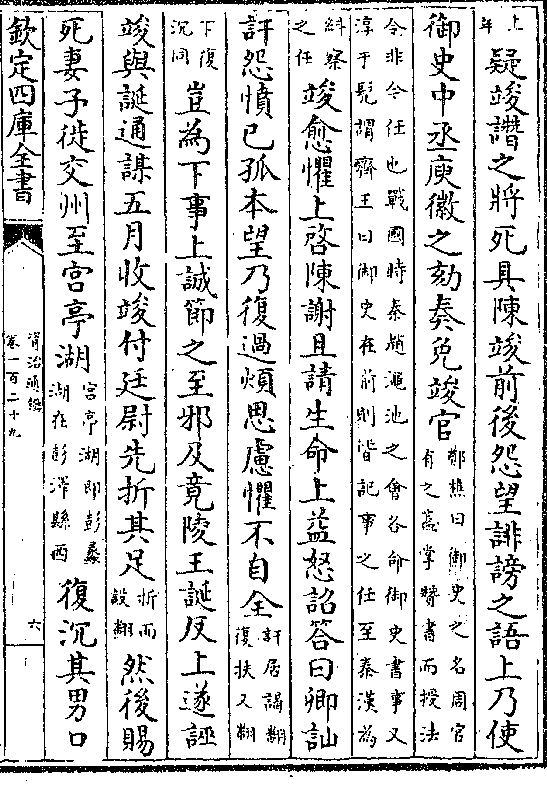 上年疑竣譖之將死具陳竣前後怨望誹謗之語上乃使
御史中丞庾徽之劾奏免竣官鄭樵曰御史之名周官有之葢掌贊書而授法
令非今任也戰國時秦趙澠池之會各命御史書事又淳于髠謂齊王曰御史在前則皆記事之任至秦漢為
糾察之任竣愈懼上啓陳謝且請生命上益怒詔答曰卿訕
訐怨憤已孤本望乃復過煩思慮懼不自全訐居謁翻復扶又翻
下復沉同豈為下事上誠節之至邪及竟陵王誕反上遂誣
竣與誕通謀五月收竣付廷尉先折其足折而設翻然後賜
死妻子徙交州至宮亭湖宮亭湖即彭蠡湖在彭澤縣西復沉其男口
欽定四庫全書
資治通鑑
卷一百二十九
六